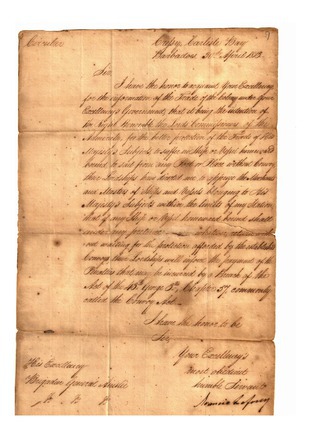 Circular
Cressy, Carlisle Bay
Barbadoes, April 1813
Sir,
I have the honor to acquaint Your Excellency
for the information of the Trade of the Colony under your
Excellency's Government, that it being the intention of
the Right Honorable the Lords Commissioners of the
Admiralty, for the better protection of the Trade of His
Majesty's Subjects to suffer no Ship or Vessel homeward
bound to sail from any Port or Place without Convoy
their Lordships have directed me to apprize the
and Masters of Ships and Vessels belonging to His
Majesty's Subjects within the limits of my Station
that if any Ship or Vessel homeward bound shall
without
waiting for the protection afforded by the established
Convoy their Lordships will enforce the payment of the
Penalties that may be incurred by a Breach of the
Act of the 43d George 3d Chapter 57 commonly
called the Convoy Act.
I have the honor to be
Sir,
Your Excellency's
most obedient
humble Servant
His Excellency
Brigadier General